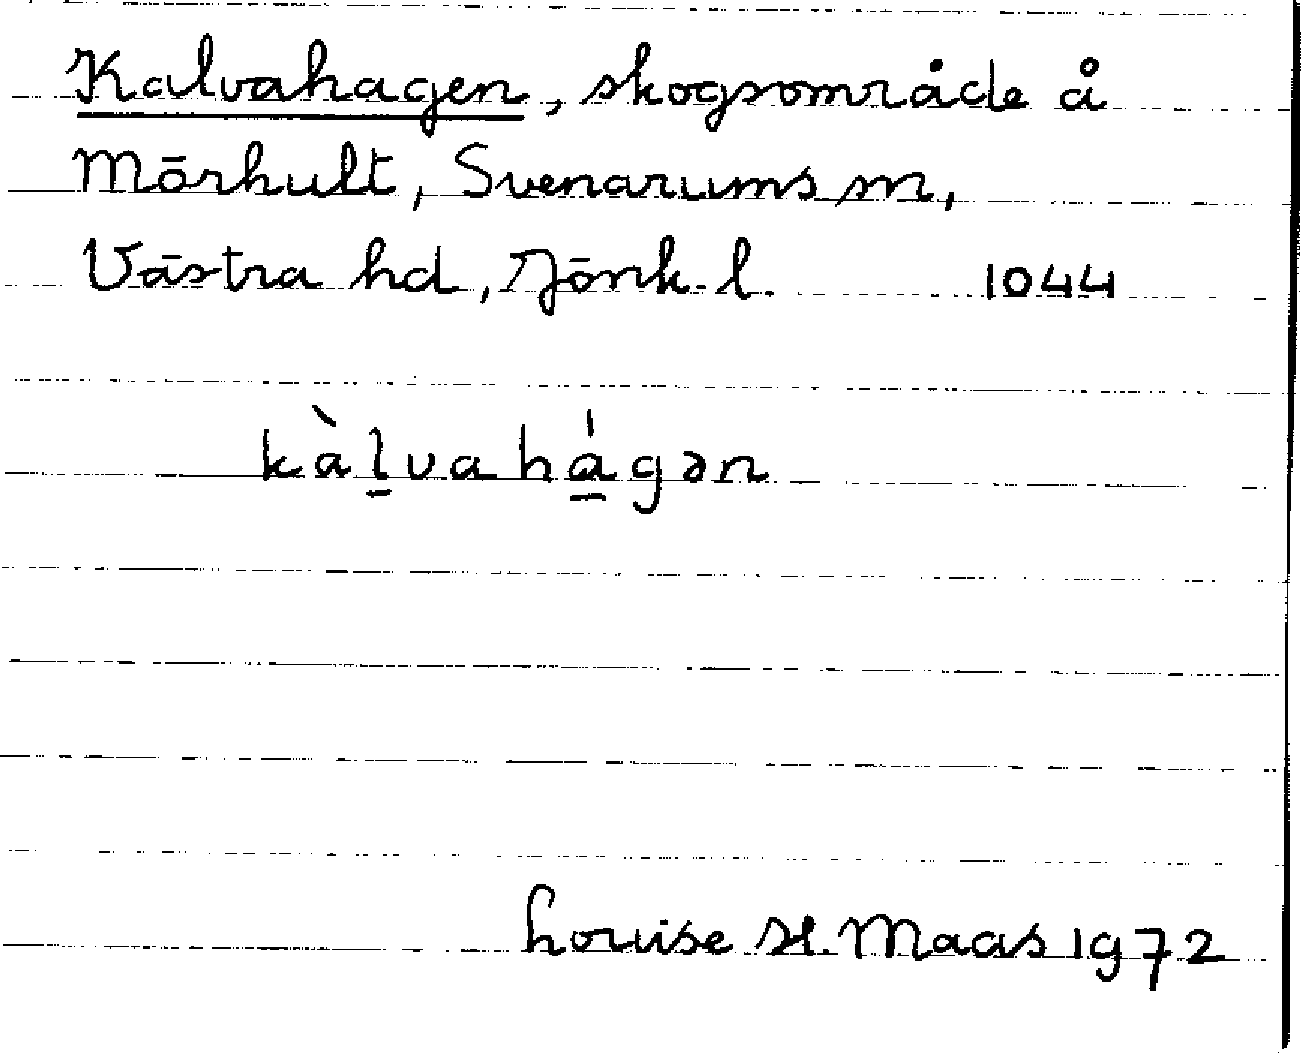 Kalvahagen, skogsområde å
Mörhult, Svenarums sn,
Västra hd, Jönk. l. 1044
kàl̠vahá̠gən
Louise H. Maas 1972